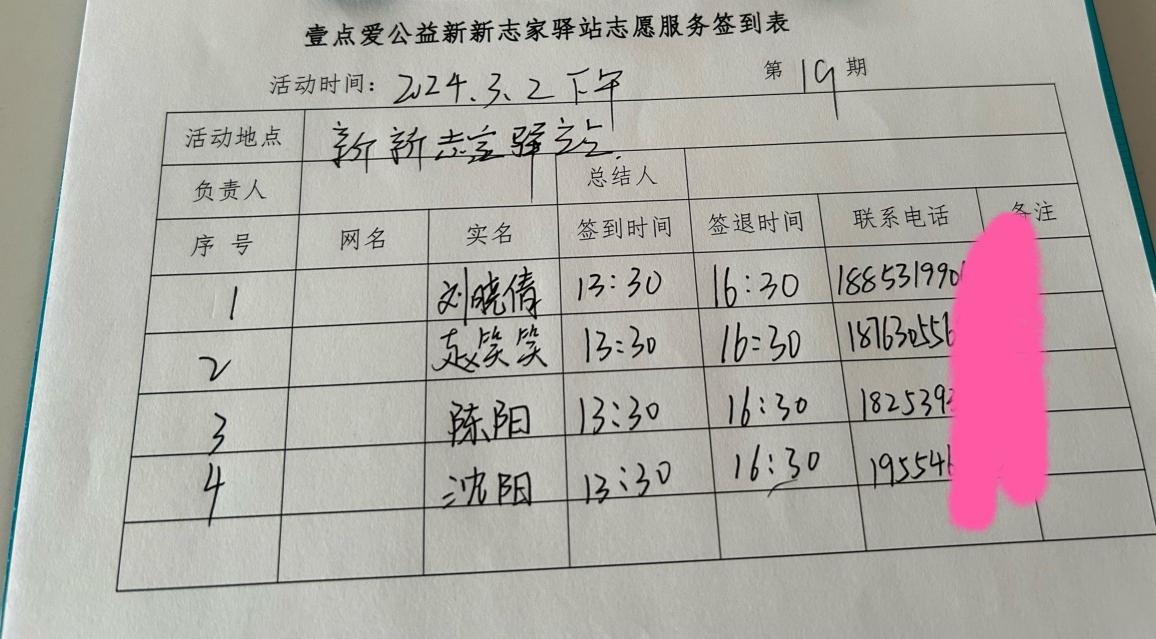 壹点爱公益新新志家驿站志愿服务签到表
活动时间：2024.3.2下午 第19期
活动地点 新新志家驿站
负责人 总结人
序号 网名 实名 签到时间 签退时间 联系电话 备注
1 刘晓倩 13:30 16:30 188531990
2 赵笑笑 13:30 16:30 18763055
3 陈阳 13:30 16:30 182539
4 沈阳 13:30 16:30 19554